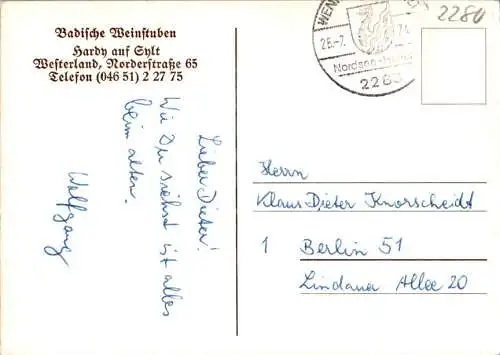 Badische Weinstuben
Hardy auf Sylt
Westerland, Norderstraße 65
Telefon (046 51) 2 27 75
2280
WENN
26.-7.
74
2283
Lieber Dieter!
Wie Du siehst ist alles
beim alten.
Wolfgang
Herrn
Klaus Dieter Knorscheidt
1 Berlin 51
Lindauer Allee 20